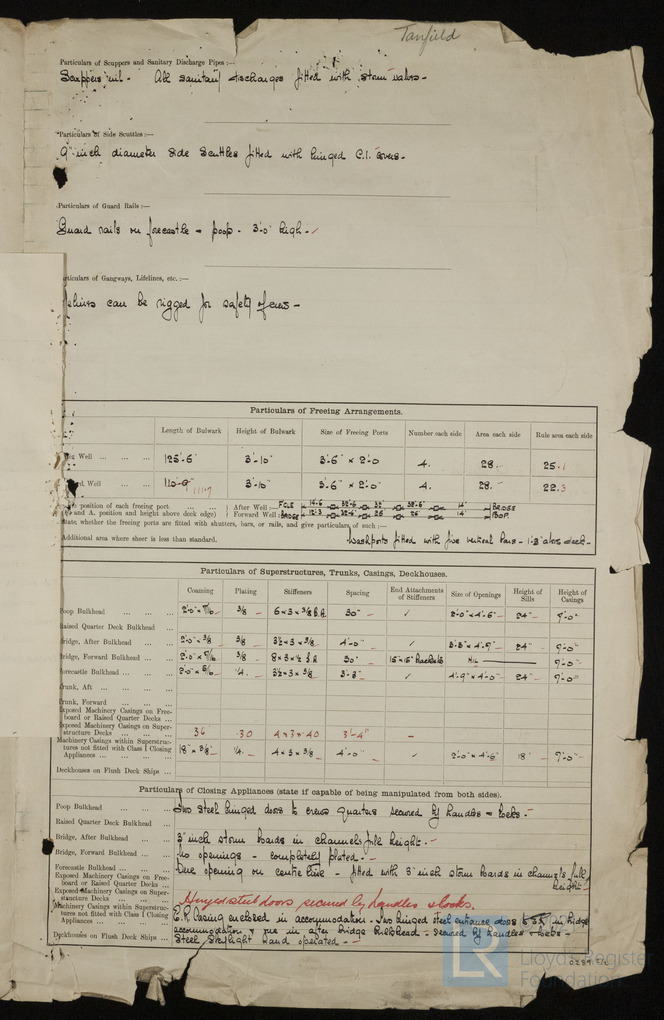 Tanfield
Particulars of Scuppers and Sanitary Discharge Pipes :—
Scuppers nil - All sanitary discharges fitted with storm valves -
Particulars of Side Scuttles :—
9" inch diameter side scuttles fitted with hinged C.I. covers -
Particulars of Guard Rails :—
Guard rails on forecastle & poop - 3'-0" high -
articulars of Gangways, Lifelines, etc. :—
can be rigged for safety of crew -
Particulars of Freeing Arrangements.
Length of Bulwark Height of Bulwark Size of Freeing Ports Number each side Area each side Rule area each side
Well ... ... ... 125'-6" 3'-10" 3'-6" × 2'-0 4. 28. 25.1
rd Well ... ... 110-9" 111.9 3'-10" 3'-6" × 2'-0" 4. 28. 22.3
position of each freeing port ... ... } After Well :- FCLE 14'-6 32'-6 32' 32'-6" 14' BRIDGE
and A. position and height above deck edge) } Forward Well :- BRIDGE 12'-3 32'-6 26 26 14' POOP.
State whether the freeing ports are fitted with shutters, bars, or rails, and give particulars of such :—
Additional area where sheer is less than standard. Washports fitted with five vertical bars - 1'-3" above deck -
Particulars of Superstructures, Trunks, Casings, Deckhouses.
Coaming Plating Stiffeners Spacing End Attachments of Stiffeners Size of Openings Height of Sills Height of Casings
Poop Bulkhead ... ... ... 2'-0" × 7/16 - 3/8 - 6 × 3 × 3/8 B.A. 30" - ✓ 2'-0" × 4'-6" - 24" - 7'-0"
Raised Quarter Deck Bulkhead
Bridge, After Bulkhead ... ... 2'-0" × 3/8 3/8 3½ × 3 × 3/8 4'-0" - ✓ 3'-3" × 4'-9" - 24" - 7'-0"
Bridge, Forward Bulkhead ... 2'-0" × 7/16 3/8 - 8 × 3 × ½ B.A 30" 15" × 15" Brackets NIL 7'-0"
Forecastle Bulkhead ... ... 2'-0" × 5/16 ¼ - 3½ × 3 × 3/8 3'-3" ✓ 4'-9" × 4'-0" - 24" - 7'-0"
Trunk, Aft ... ... ... ...
Trunk, Forward ... ... ...
Exposed Machinery Casings on Free-
board or Raised Quarter Decks ...
Exposed Machinery Casings on Super-
structure Decks ... ... ... .36 .30 4 × 3 × .40 3'-4" -
Machinery Casings within Superstruc-
tures not fitted with Class 1 Closing
Appliances ... ... ... ... 18" × 3/8" - ¼ - 4 × 3 × 3/8 4'-0" - ✓ 2'-0" × 4'-6" 18" - 7'-0"
Deckhouses on Flush Deck Ships ...
Particulars of Closing Appliances (state if capable of being manipulated from both sides).
Poop Bulkhead ... ... ... Two steel hinged doors to crews quarters secured by handles & locks -
Raised Quarter Deck Bulkhead
Bridge, After Bulkhead ... ... 3" inch storm boards in channels full height -
Bridge, Forward Bulkhead ... No openings - completely plated -
Forecastle Bulkhead ... ... One opening on centre line - fitted with 3" inch storm boards in channels full height
Exposed Machinery Casings on Free-
board or Raised Quarter Decks ...
Exposed Machinery Casings on Super-
structure Decks ... ... ... Hinged steel doors secured by handles & locks.
Machinery Casings within Superstruc-
tures not fitted with Class 1 Closing
Appliances ... ... ... E.R. Casing enclosed in accommodation - Two hinged steel entrance doors to in bridge
accommodation & one in after bridge bulkhead - secured by handles & locks -
Deckhouses on Flush Deck Ships ... Steel Skylight hand operated -
LR
Lloyd's Register
Foundation